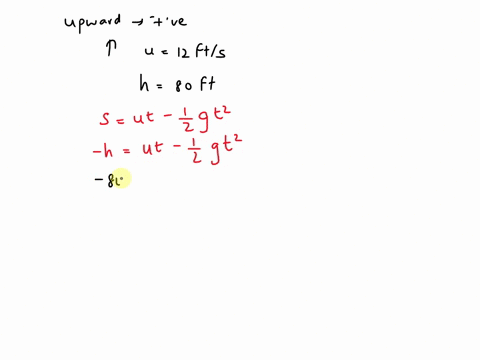 upward → +ive
↑ u = 12 ft/s
h = 80 ft
s = ut - 1/2 gt²
-h = ut - 1/2 gt²